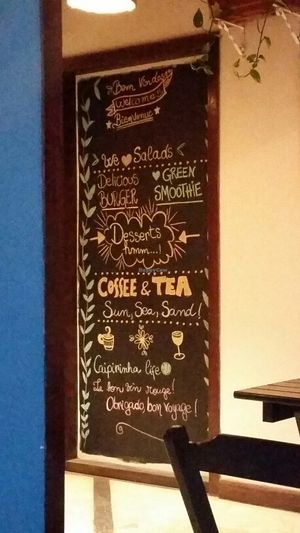 Bom Vindos
Welcome!!
Bienvenue
We Salads
Delicious BURGER
GREEN SMOOTHIE
Desserts
humm....!
COFFEE & TEA
Sun, Sea, Sand!
Caipirinha life
Le bon vin rouge!
Obrigado, bon voyage!